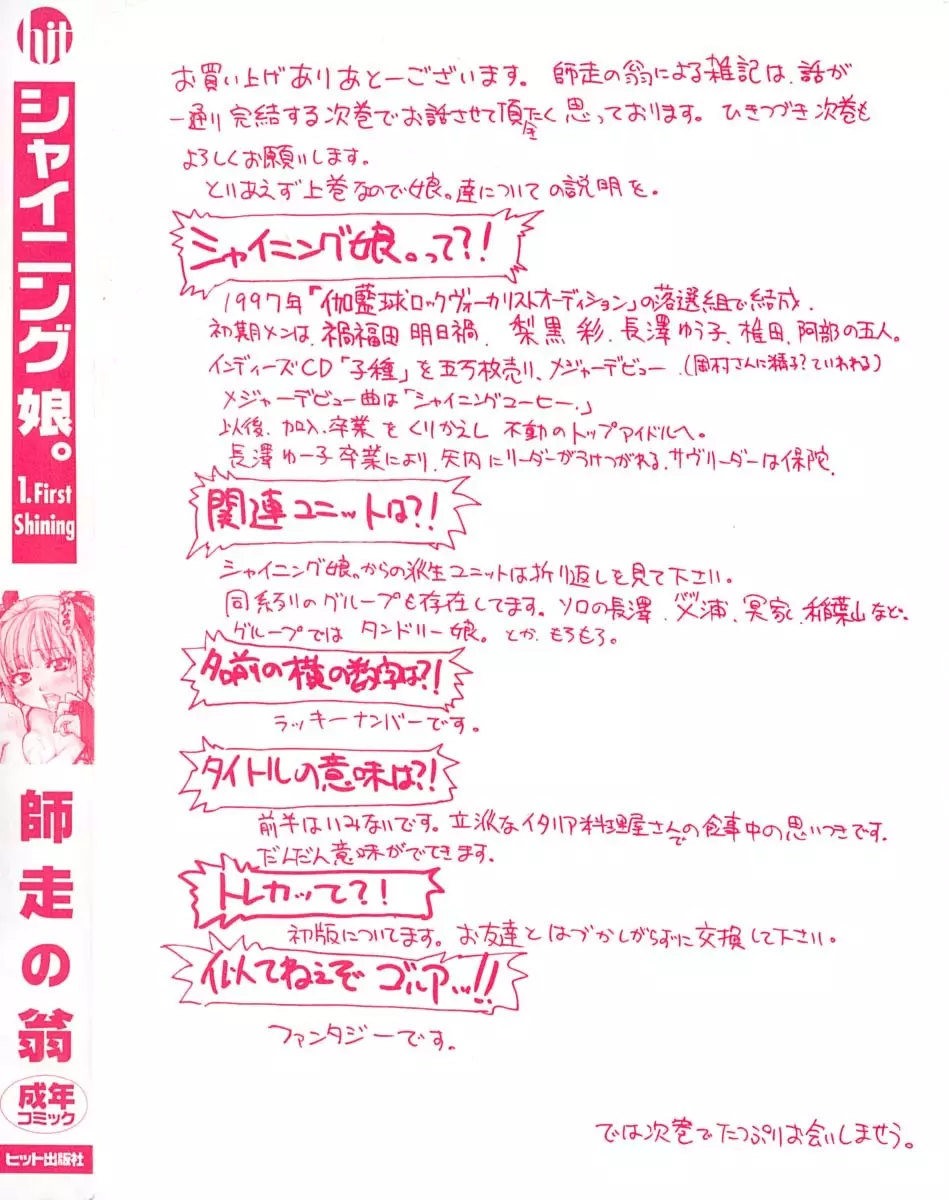 hit
シャイニング娘。
1.First
Shining
師走の翁
成年
コミック
ヒット出版社
お買い上げありあとーございます。 師走の翁による雑記は、話が
一通り完結する次巻でお話させて頂たく思っております。 ひきつづき次巻も
よろしくお願いします。
とりあえず上巻なので娘。達についての説明を。
シャイニング娘。って?!
1997年「伽藍球ロックヴォーカリストオーディション」の落選組で結成。
初期メンは、禍福田明日禍、梨黒彩、長澤ゆう子、椎田、阿部の五人。
インディーズCD「子種」を五万枚売り、メジャーデビュー。(岡村さんに精子?ていわれる)
メジャーデビュー曲は「シャイニングコーヒー。」
以後、加入、卒業をくりかえし不動のトップアイドルへ。
長澤ゆー子卒業により、矢内にリーダーがうけつがれる、サヴリーダーは保陀。
関連ユニットは?!
シャイニング娘。からの派生ユニットは折り返しを見て下さい。
同系列のグループも存在してます。ソロの長澤、浦、冥家、稲葉山など。
グループでは タンドリー娘。とか、もろもろ。
名前の横の数字は?!
ラッキーナンバーです。
タイトルの意味は?!
前半はいみないです。立派なイタリア料理屋さんでの食事中の思いつきです。
だんだん意味がでてきます。
トレカッて?!
初版についてます。お友達とはづかしがらずに交換して下さい。
似てねえぞ ゴルアッ!!
ファンタジーです。
では次巻でたっぷりお会いしませう。